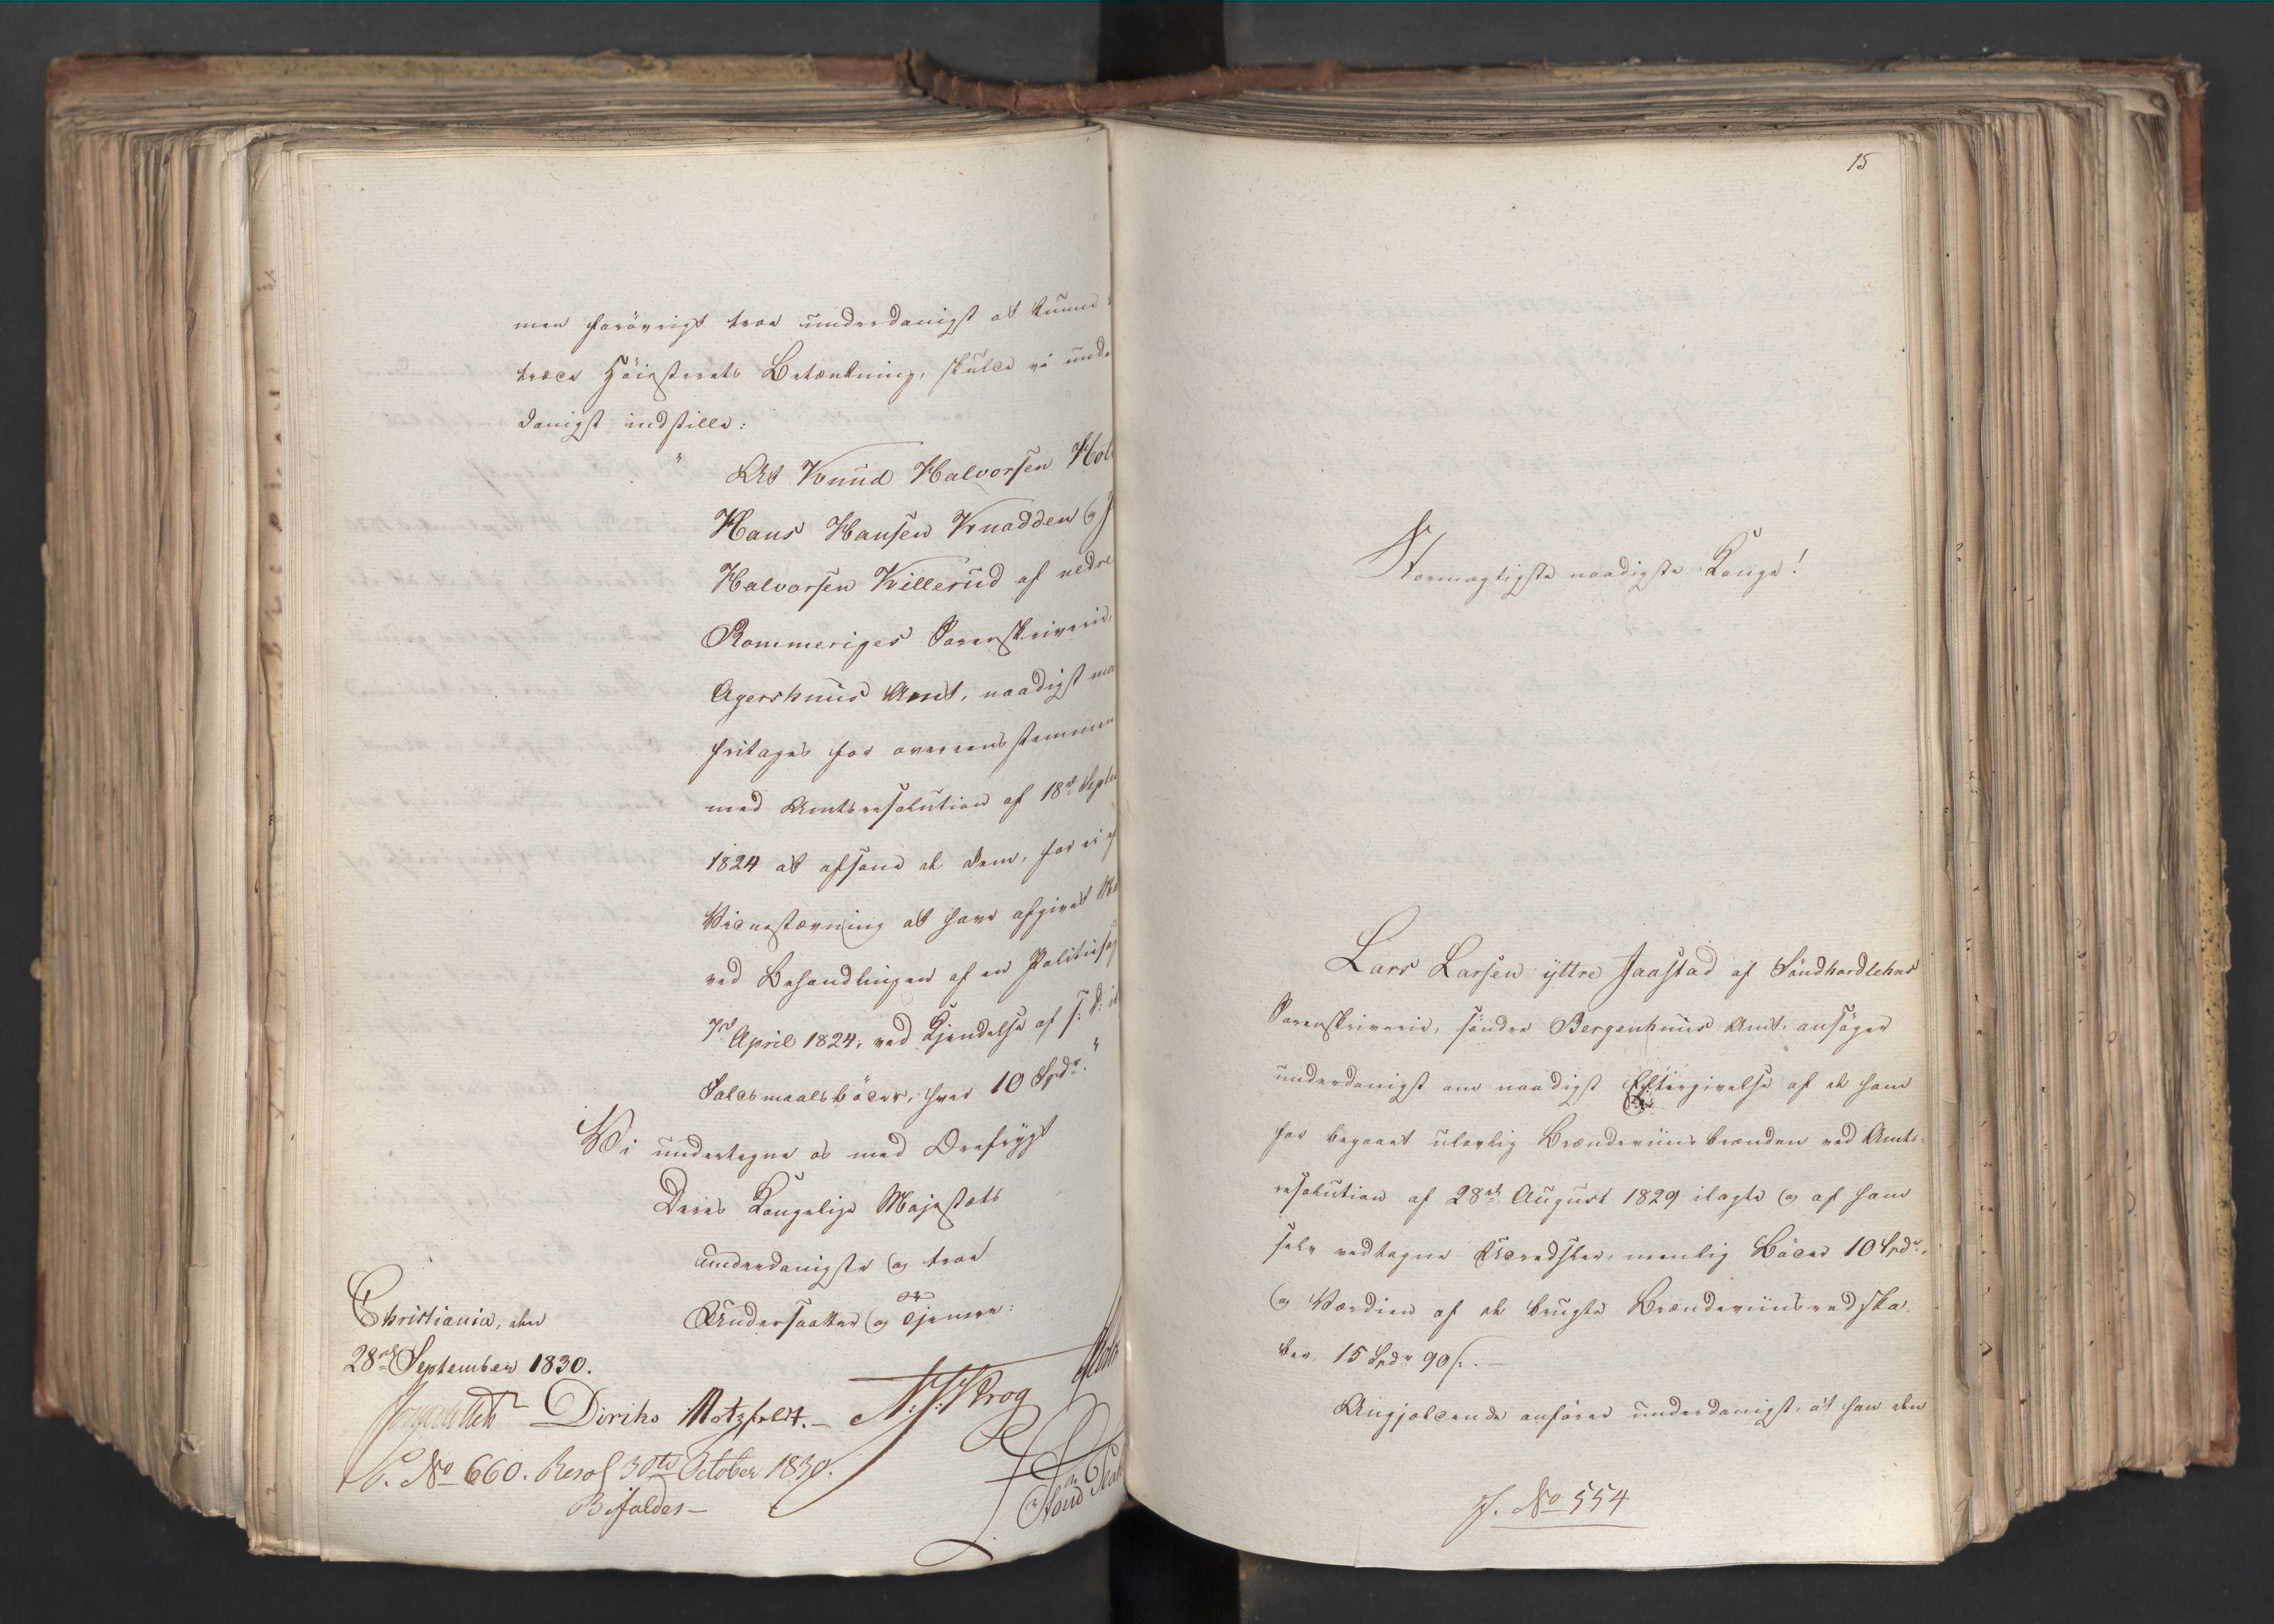 men forövrigt troe underdanigst at kunne
træde Höiesterets Betænkning, skulle vi unde
danigst indstille:
" At Knud Halvorsen Hol
Hans Hansen Knadden og
Halvorsen Killerud af nedre
Rommeriges Sorenskriverie,
Agershuus Amt, naadigst maa
fritages for overeensstemmen
med Amtsresolution af 18de Septe
1824 at afsone de dem, for ei
Vidnestævning at have afgivet
ved Behandlingen af en Politiesag
7de April 1824, ved Kjendelse af s: D:
Faldsmaalsböder, hver 10 Spdr."
Vi undertegne os med Ærefrygt
Deres Kongelige Majestæts
underdanigste og troe
Undersaatter og Tjenere:
Christiania, den
28de September 1830.
Diriks Motzfeldt.- Krog
S. No 660. Resol 30te October 1830.
Bifaldes-
15
Stormægtigste naadigste Konge!
Lars Larsen yttre Jaastad af Söndhordlehns
Sorenskriverie, söndre Bergenhuus Amt, ansöger
underdanigst om naadigst Eftergivelse af de ham
for begaaet ulovlig Brændeviinsbrænden ved Amts-
resolution af 28de August 1829 ilagte og af ham
selv vedtagne Udredsler, nemlig Böder 10 Spdr.,
og Værdien af de brugte Brændeviinsredska-
ber, 15 Spdr 90 s. -
Angjeldende anförer underdanigst, at han den
J. No 554